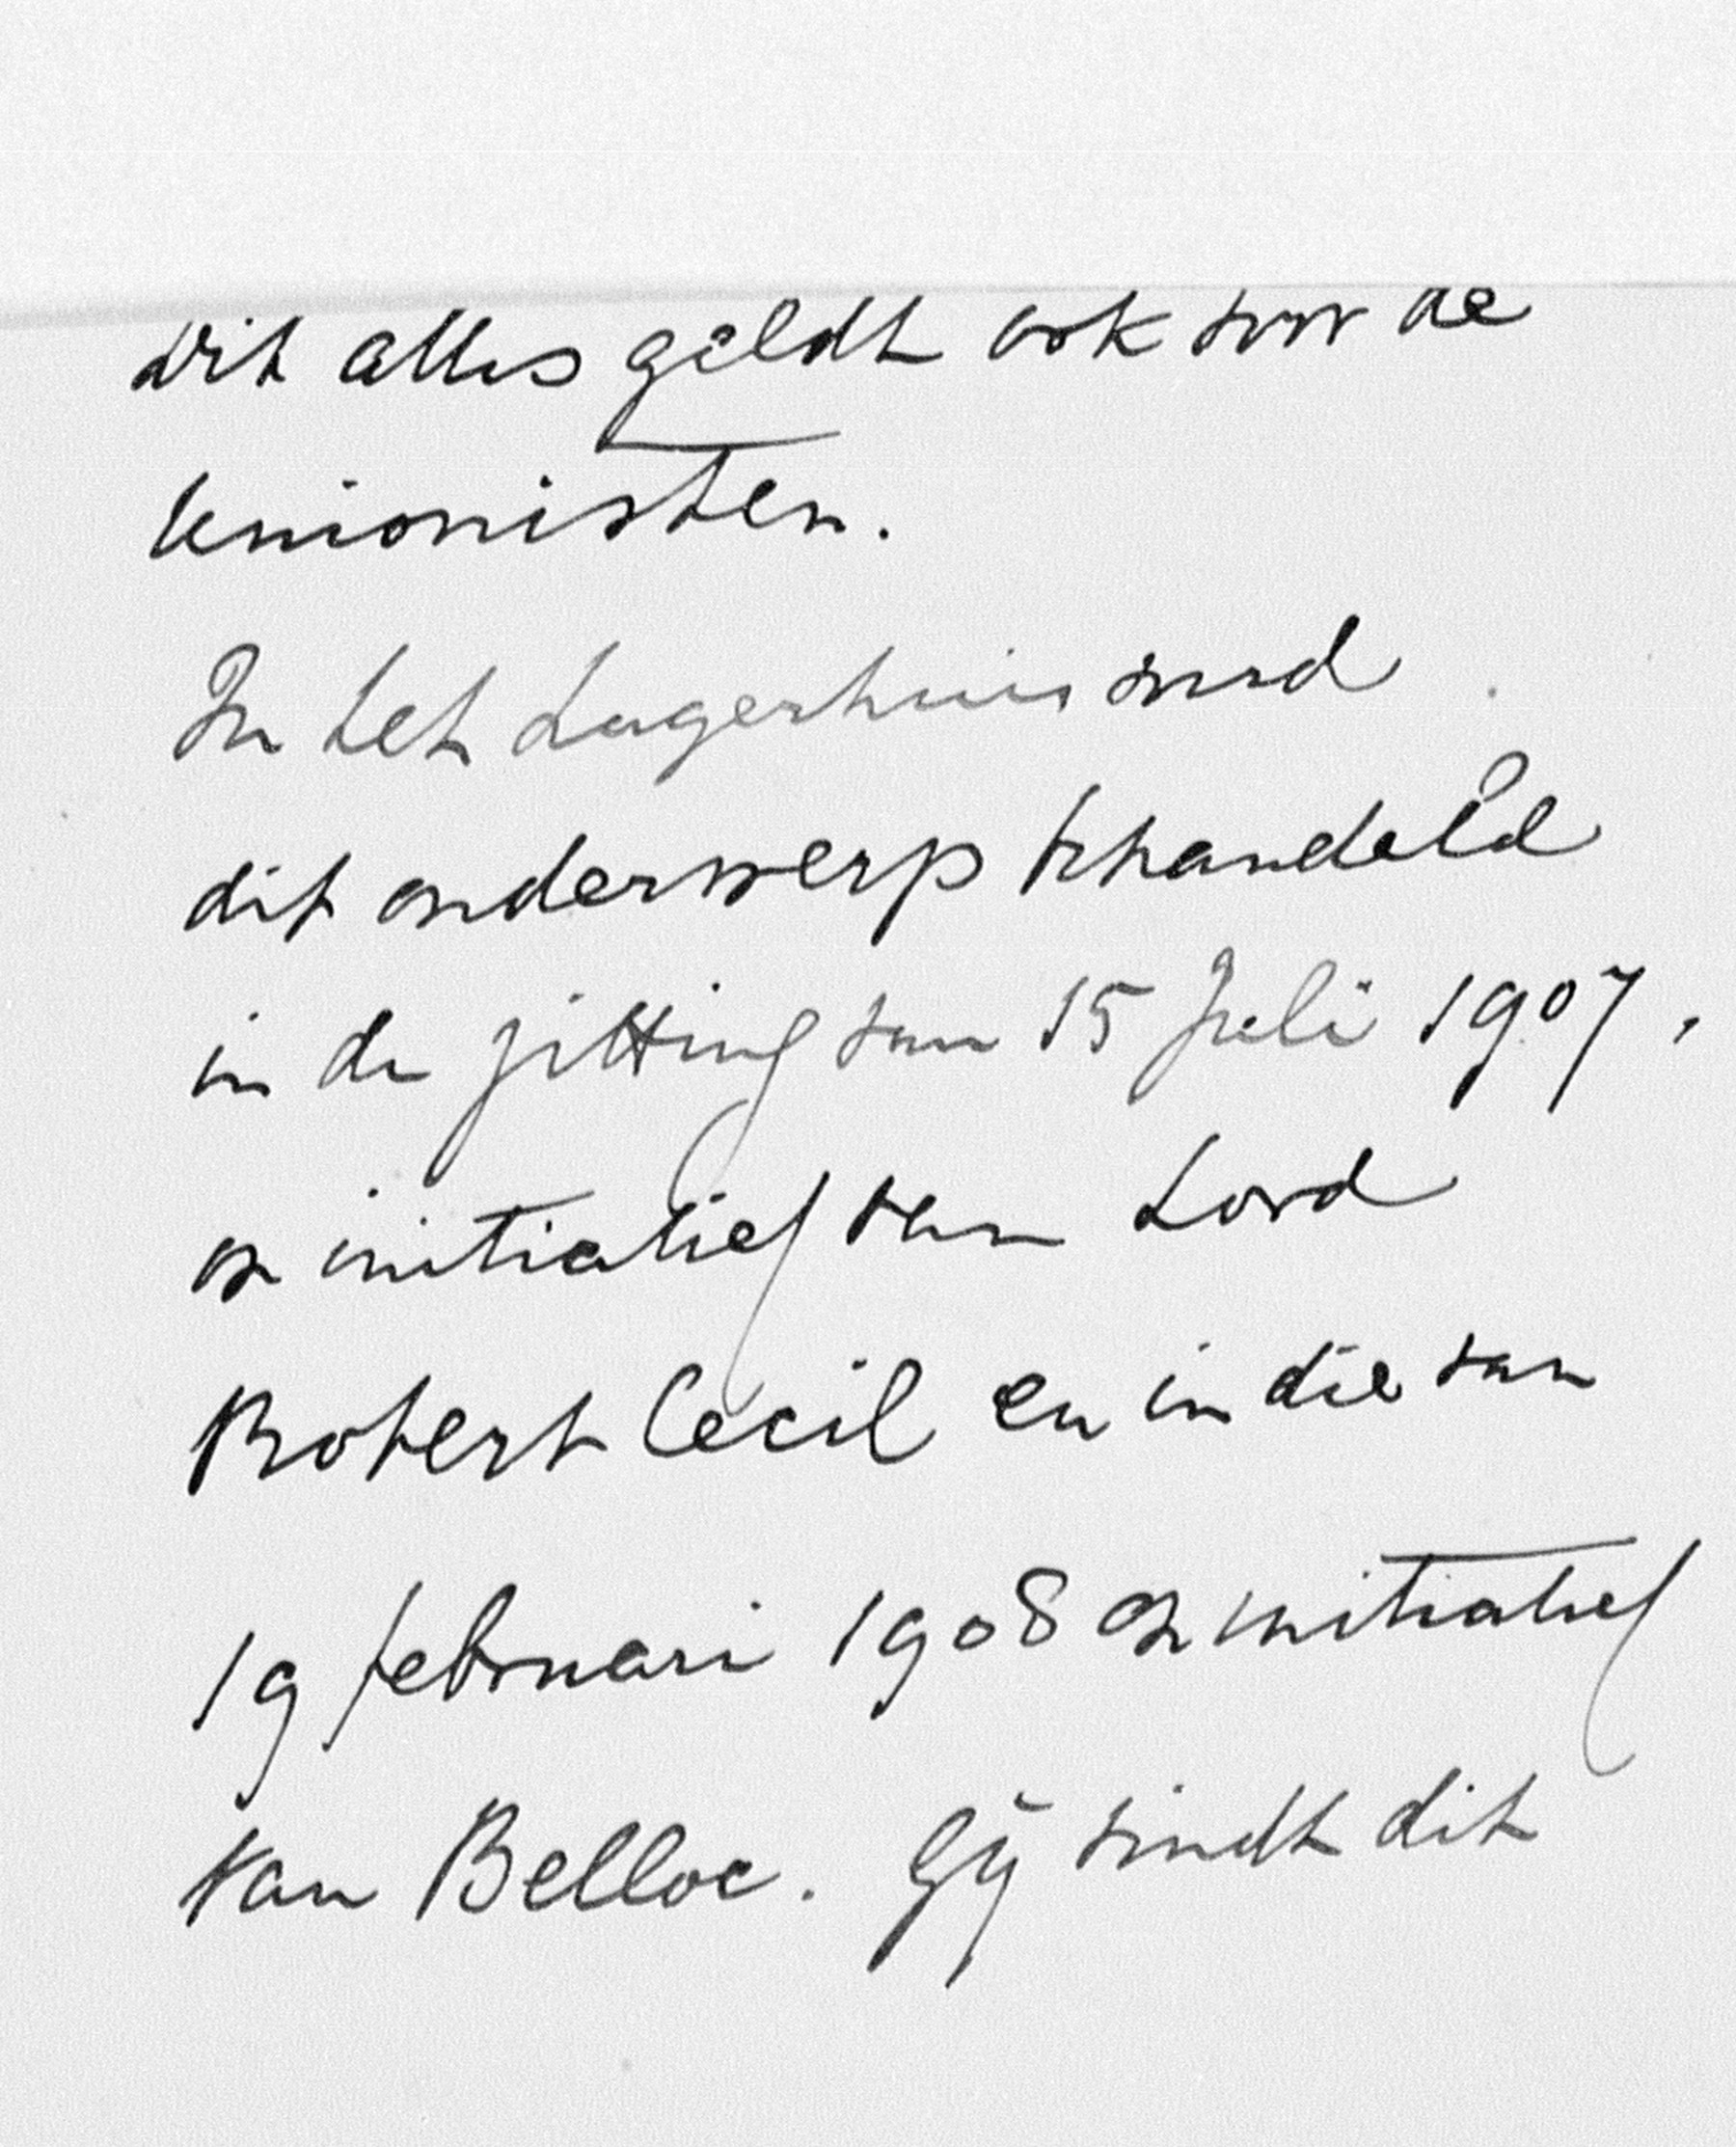 Dit alles geldt ook voor de
Unionisten.
In het Lagerhuis werd
dit onderwerp behandeld
in de zitting van 15 Juli 1907,
op initiatief van Lord
Robert Cecil en in die van
19 februari 1908 op initiatief
van Belloc. Gij vindt dit